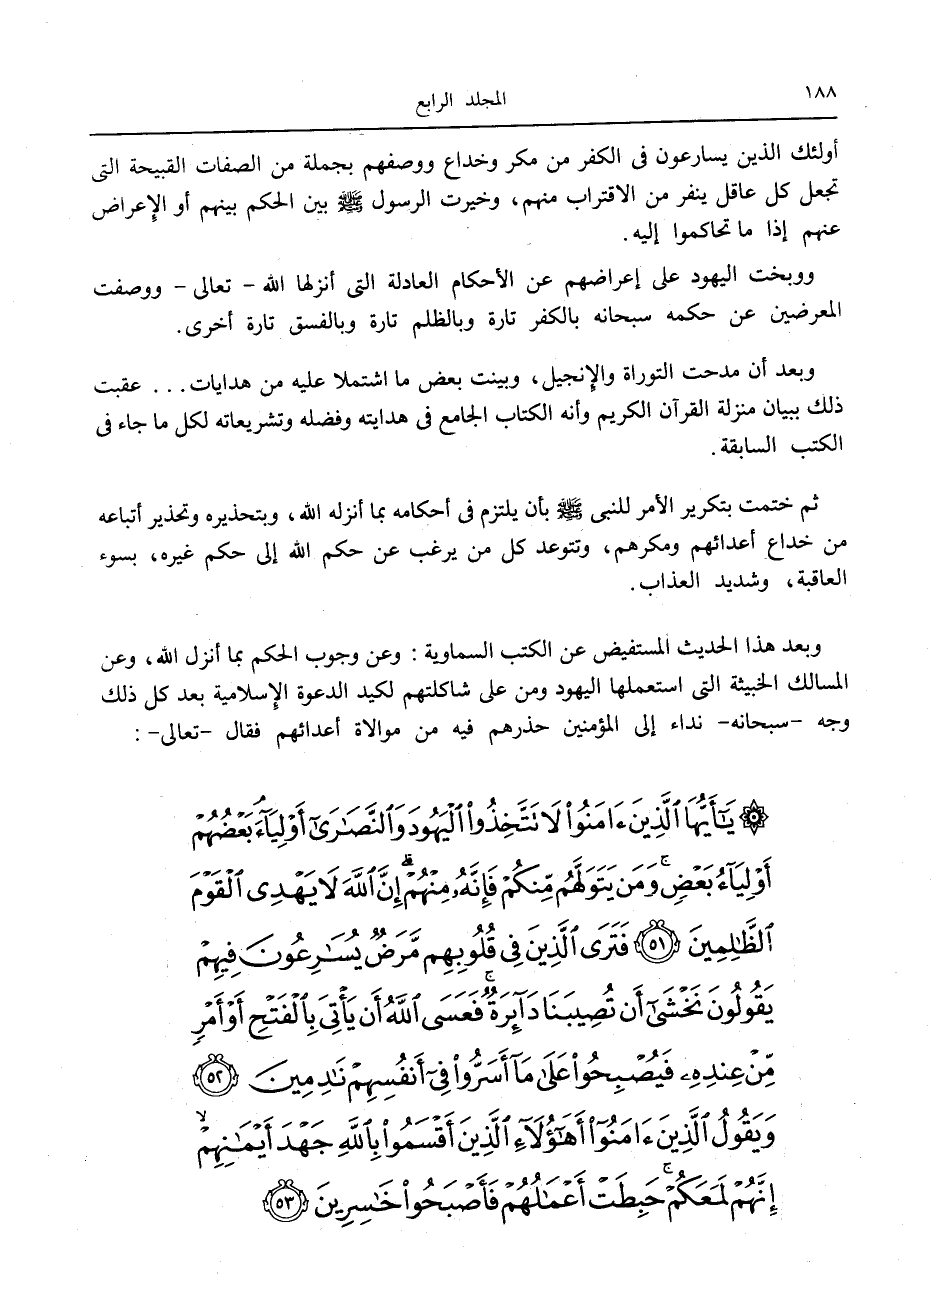 ١٨٨
المجلد الرابع
أولئك الذين يسارعون فى الكفر من مكر وخداع ووصفهم بجملة من الصفات القبيحة التى
تجعل كل عاقل ينفر من الاقتراب منهم، وخيرت الرسول ﷺ بين الحكم بينهم أو الإعراض
عنهم إذا ما تحاكموا إليه.
ووبخت اليهود على إعراضهم عن الأحكام العادلة التى أنزلها الله - تعالى - ووصفت
المعرضين عن حكمه سبحانه بالكفر تارة وبالظلم تارة وبالفسق تارة أخرى.
وبعد أن مدحت التوراة والإنجيل، وبينت بعض ما اشتملا عليه من هدايات... عقبت
ذلك ببيان منزلة القرآن الكريم وأنه الكتاب الجامع فى هدايته وفضله وتشريعاته لكل ما جاء فى
الكتب السابقة.
ثم ختمت بتكرير الأمر للنبى ﷺ بأن يلتزم فى أحكامه بما أنزله الله، وبتحذيره وتحذير أتباعه
من خداع أعدائهم ومكرهم، وتتوعد كل من يرغب عن حكم الله إلى حكم غيره، بسوء
العاقبة، وشديد العذاب.
وبعد هذا الحديث المستفيض عن الكتب السماوية : وعن وجوب الحكم بما أنزل الله، وعن
المسالك الخبيثة التى استعملها اليهود ومن على شاكلتهم لكيد الدعوة الإسلامية بعد كل ذلك
وجه -سبحانه- نداء إلى المؤمنين حذرهم فيه من موالاة أعدائهم فقال -تعالى- :
۞ يَٰٓأَيُّهَا ٱلَّذِينَ ءَامَنُوا۟ لَا تَتَّخِذُوا۟ ٱلْيَهُودَ وَٱلنَّصَٰرَىٰٓ أَوْلِيَآءَ ۘ بَعْضُهُمْ
أَوْلِيَآءُ بَعْضٍ ۚ وَمَن يَتَوَلَّهُم مِّنكُمْ فَإِنَّهُۥ مِنْهُمْ ۗ إِنَّ ٱللَّهَ لَا يَهْدِى ٱلْقَوْمَ
ٱلظَّٰلِمِينَ ٥١ فَتَرَى ٱلَّذِينَ فِى قُلُوبِهِم مَّرَضٌ يُسَٰرِعُونَ فِيهِمْ
يَقُولُونَ نَخْشَىٰٓ أَن تُصِيبَنَا دَآئِرَةٌ ۚ فَعَسَى ٱللَّهُ أَن يَأْتِىَ بِٱلْفَتْحِ أَوْ أَمْرٍ
مِّنْ عِندِهِۦ فَيُصْبِحُوا۟ عَلَىٰ مَآ أَسَرُّوا۟ فِىٓ أَنفُسِهِمْ نَٰدِمِينَ ٥٢
وَيَقُولُ ٱلَّذِينَ ءَامَنُوٓا۟ أَهَٰٓؤُلَآءِ ٱلَّذِينَ أَقْسَمُوا۟ بِٱللَّهِ جَهْدَ أَيْمَٰنِهِمْ ۙ
إِنَّهُمْ لَمَعَكُمْ ۚ حَبِطَتْ أَعْمَٰلُهُمْ فَأَصْبَحُوا۟ خَٰسِرِينَ ٥٣